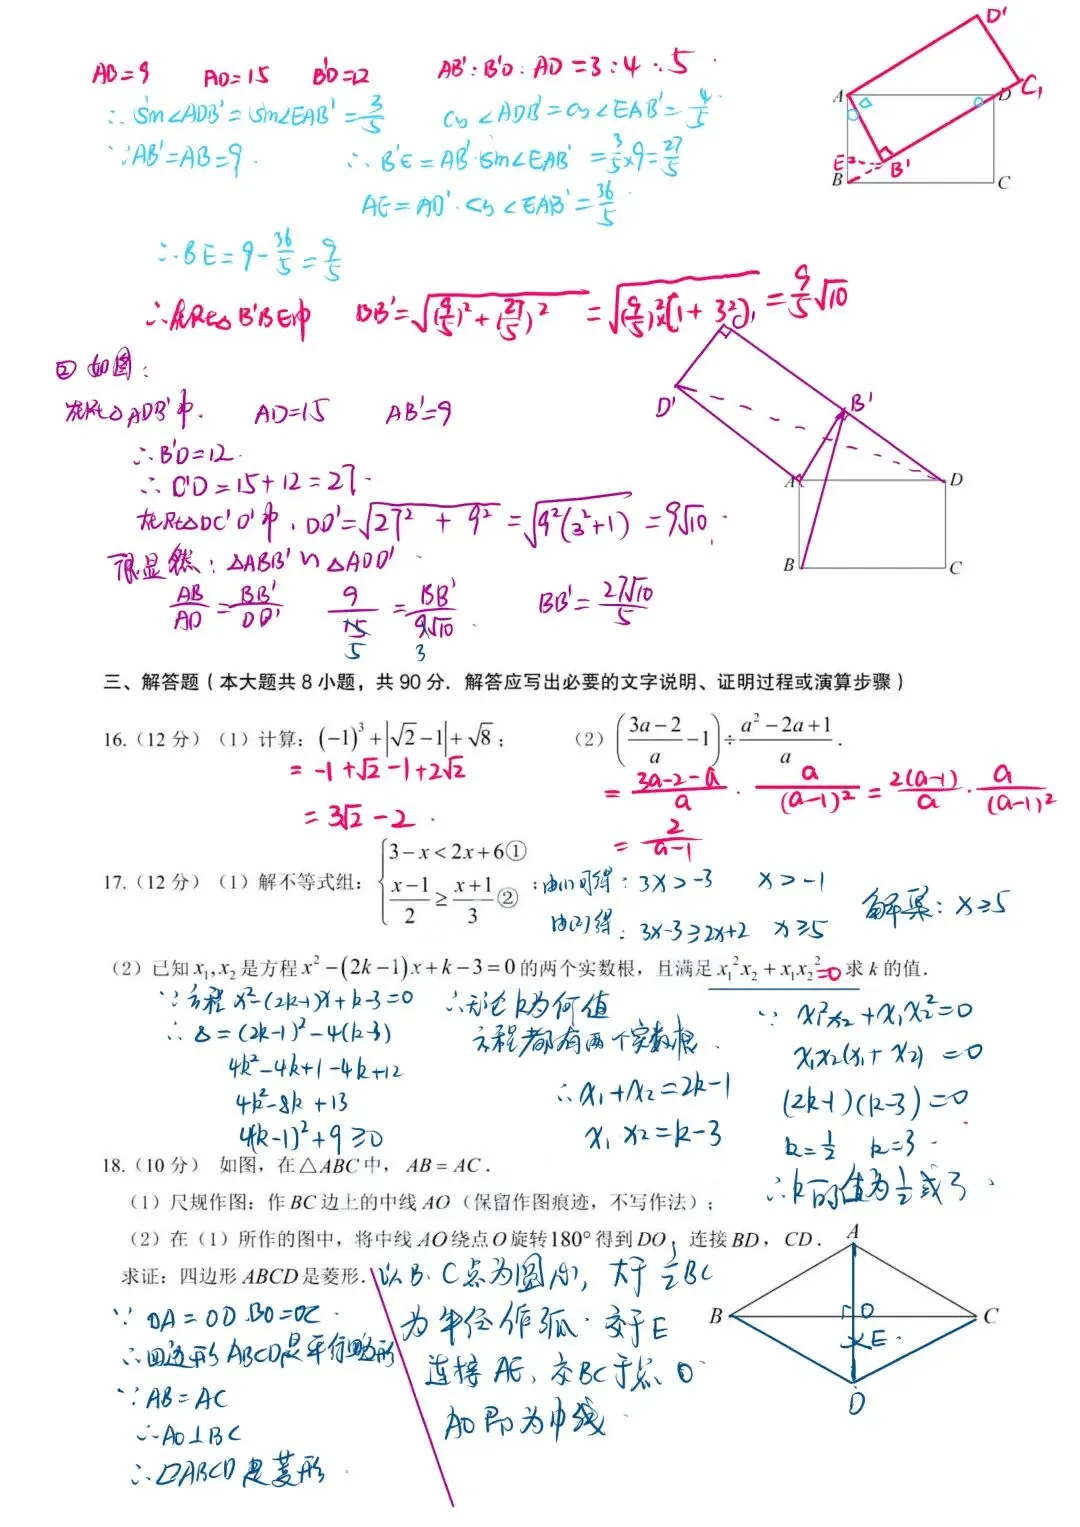 AB=9 AD=15 B'D=12 AB':B'D:AD=3:4:5
∴ sin∠ADB'=sin∠EAB'=3/5 cos∠ADB'=cos∠EAB'=4/5
∵AB'=AB=9. ∴B'E=AB'·sin∠EAB'=3/5×9=27/5
AE=AD'·cos∠EAB'=36/5
∴BE=9-36/5=9/5
∴在Rt△B'BE中 BB'=√((9/5)²+(27/5)²)=√((9/5)²×(1+3²))=9/5√10
A D' C₁ D E B' B C
② 如图:
在Rt△ADB'中. AD=15 AB'=9
∴B'D=12.
∴C'D=15+12=27.
在Rt△DC'D'中, DD'=√(27²+9²)=√(9²(3²+1))=9√10.
很显然: △ABB'∽△ADD'.
AB/AD=BB'/DD' 9/15=BB'/9√10 BB'=27√10/5
5 3
C₁ D' B' A D B C
三、解答题(本大题共8小题,共90分.解答应写出必要的文字说明、证明过程或演算步骤)
16.(12分)(1)计算:(-1)³+|√2-1|+√8; (2)((3a-2)/a-1)÷(a²-2a+1)/a.
=-1+√2-1+2√2
=3√2-2.
=(3a-2-a)/a·a/(a-1)²=2(a-1)/a·a/(a-1)²
=2/(a-1)
17.(12分)(1)解不等式组:{3-x<2x+6① (x-1)/2≥(x+1)/3②;
由(1)可得:3x>-3 x>-1
由(2)得:3x-3≥2x+2 x≥5
解集:x≥5
(2)已知x₁,x₂是方程x²-(2k-1)x+k-3=0的两个实数根,且满足x₁²x₂+x₁x₂²=0求k的值.
∵方程x²-(2k-1)x+k-3=0
∴△=(2k-1)²-4(k-3)
4k²-4k+1-4k+12
4k²-8k+13
4(k-1)²+9≥0
∴无论k为何值
方程都有两个实数根.
∴x₁+x₂=2k-1
x₁x₂=k-3
∵x₁²x₂+x₁x₂²=0
x₁x₂(x₁+x₂)=0
(2k-1)(k-3)=0
k=1/2 k=3.
∴k的值为1/2或3.
18.(10分) 如图,在△ABC中,AB=AC.
(1)尺规作图:作BC边上的中线AO(保留作图痕迹,不写作法);
(2)在(1)所作的图中,将中线AO绕点O旋转180°得到DO,连接BD,CD.
求证:四边形ABCD是菱形.
∵OA=OD.BO=OC.
∴四边形ABCD是平行四边形
∵AB=AC
∴AO⊥BC
∴▱ABCD是菱形.
以B.C点为圆心,大于1/2BC
为半径作弧.交于E
连接AE,交BC于点O
AO即为中线.
A B O C E D